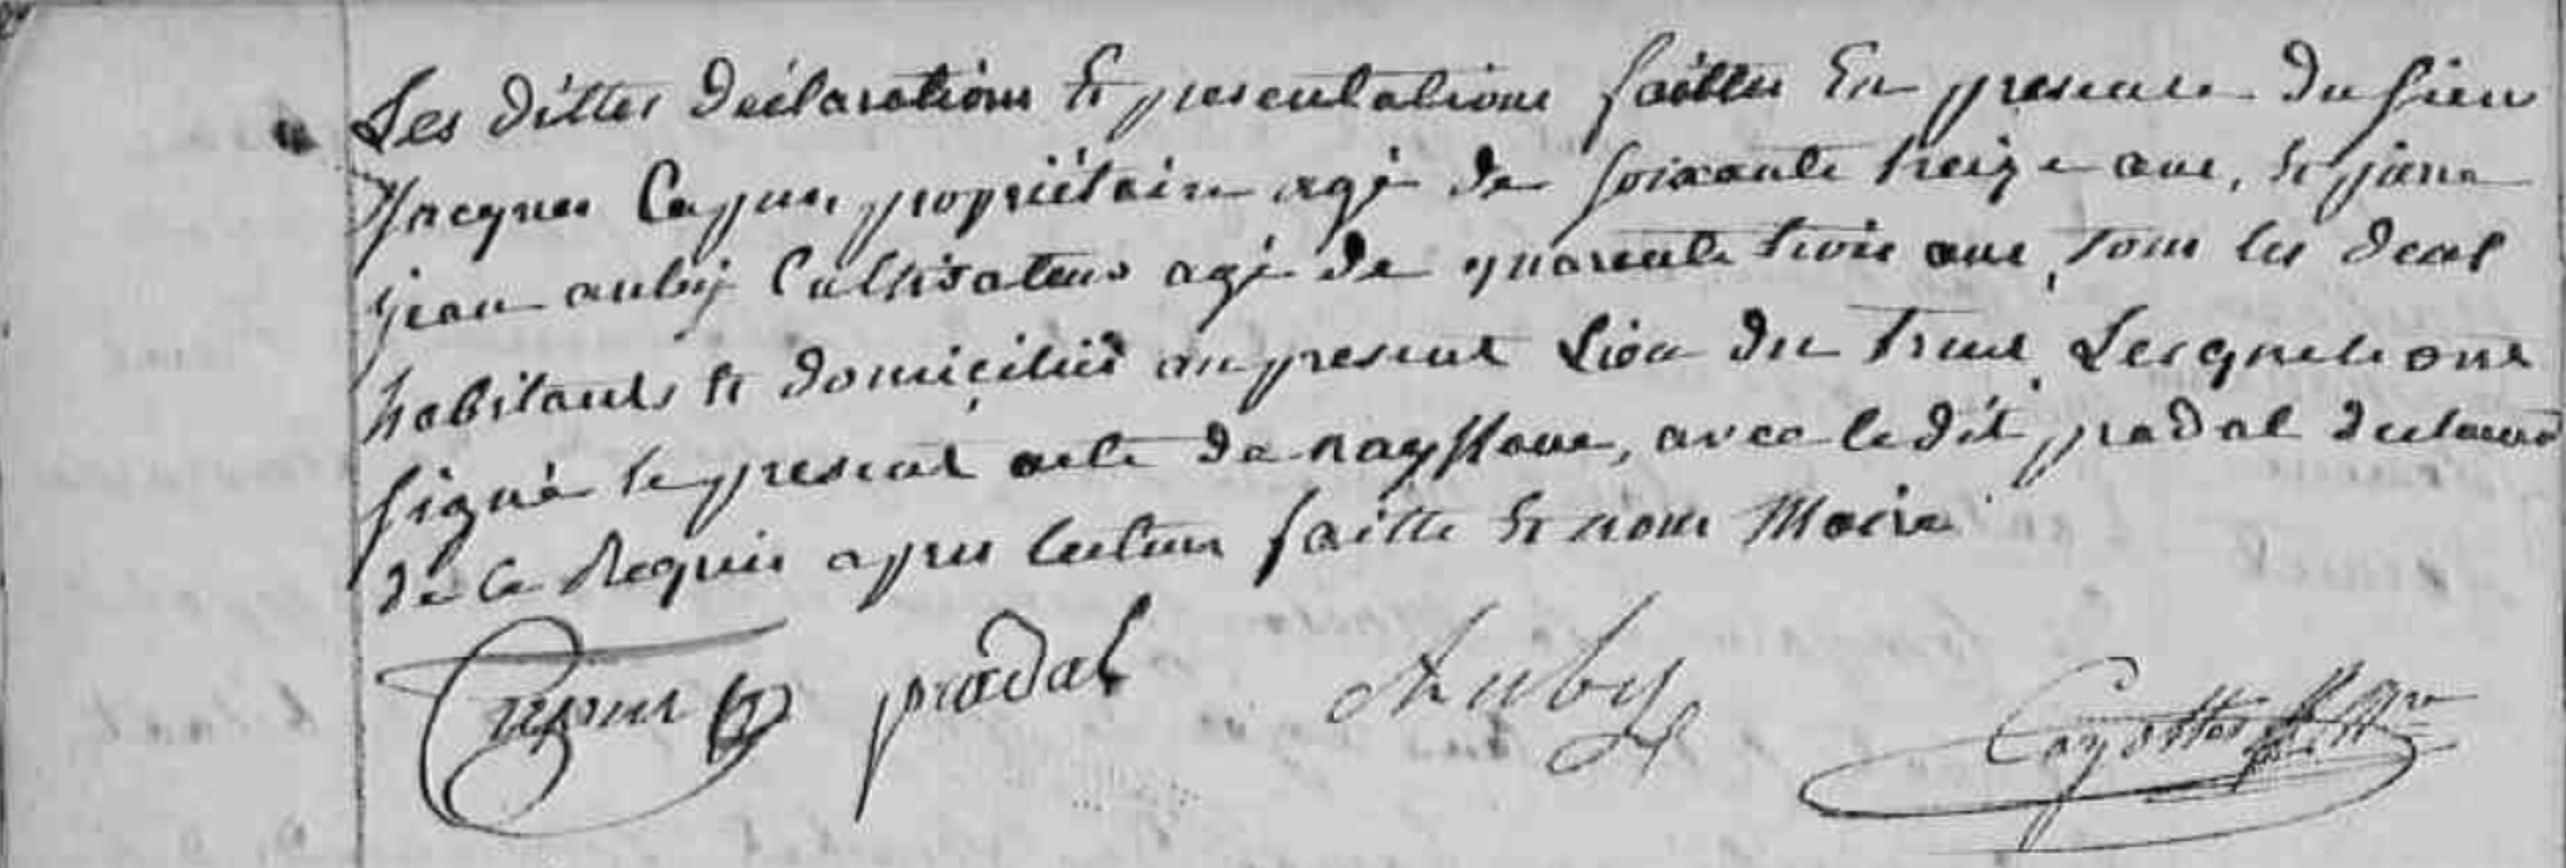 Les dittes déclarations et presentations faittes En presence du sieur
Jacques Capus, propriétaire agé de soixante treize ans, et pierre
jean auby Cultivateur agé de quarente trois ans, tous les deux
habitants et domiciliés au present Lieu du truel, Lesquels ont
signé le present acte de nayssance, avec le dit pradal declarant
de ce Requis apres lecture faitte et nous Maire
Capus pradal Auby